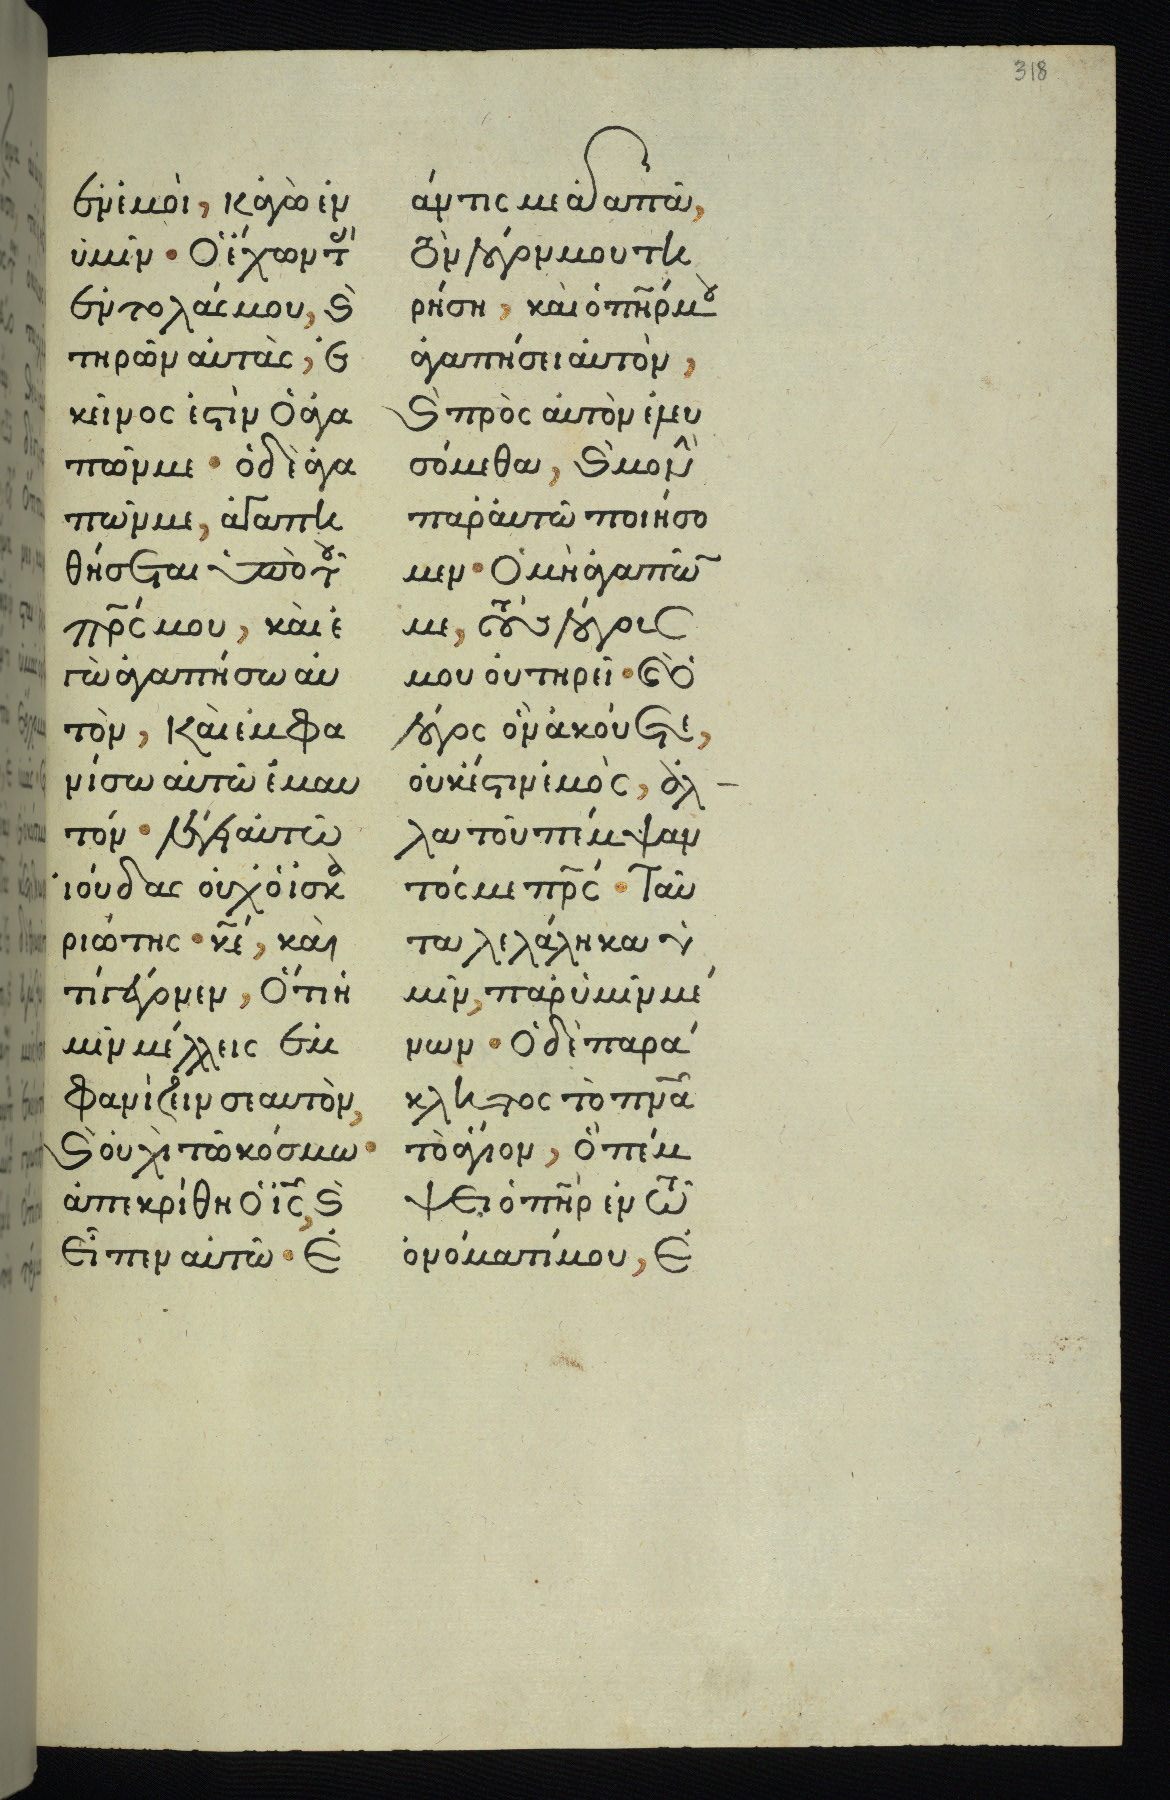 318
ἐν ἐμοὶ, κἀγὼ ἐν
ὑμῖν · Ὁ ἔχων τ
ἐντολάς μου, κ
τηρῶν αὐτὰς, ἐ
κεῖνος ἐστὶν ὁ ἀγα
πῶν με · ὁ δὲ ἀγα
πῶν με, ἀγαπη
θήσεται ὑπὸ τοῦ
πρς μου, καὶ ἐ
γὼ ἀγαπήσω αὐ
τὸν, καὶ ἐμφα
νίσω αὐτῶ ἐμαυ
τόν · λέγει αὐτῶ
ἰούδας οὐχ ὁ ἰσκα
ριώτης · κε, καὶ
τί γέγονεν, ὅτι ἡ
μῖν μέλλεις ἐμ
φανίζειν σεαυτὸν,
κ οὐχὶ τῶ κόσμω ·
ἀπεκρίθη ὁ ις, κ
εἶπεν αὐτῶ · ἐ
άν τις με ἀγαπᾶ,
τὸν λόγον μου τη
ρήση, καὶ ὁ πηρ μου
ἀγαπήσει αὐτὸν,
κ πρὸς αὐτὸν ἐλευ
σόμεθα, κ μονὴν
παρ' αὐτῶ ποιήσο
μεν · Ὁ μὴ ἀγαπῶν
με, τοὺς λόγους
μου οὐ τηρεῖ · κ ὁ
λόγος ὃν ἀκούετε,
οὐκ ἔστιν ἐμὸς, ἀλ
λα τοῦ πέμψαν
τός με πρς · Ταῦ
τα λελάληκα ὑ
μῖν, παρ' ὑμῖν μέ
νων · Ὁ δὲ παρά
κλητος τὸ πνα
τὸ ἅγιον, ὃ πέμ
ψει ὁ πηρ ἐν τῶ
ὀνόματί μου, ἐ